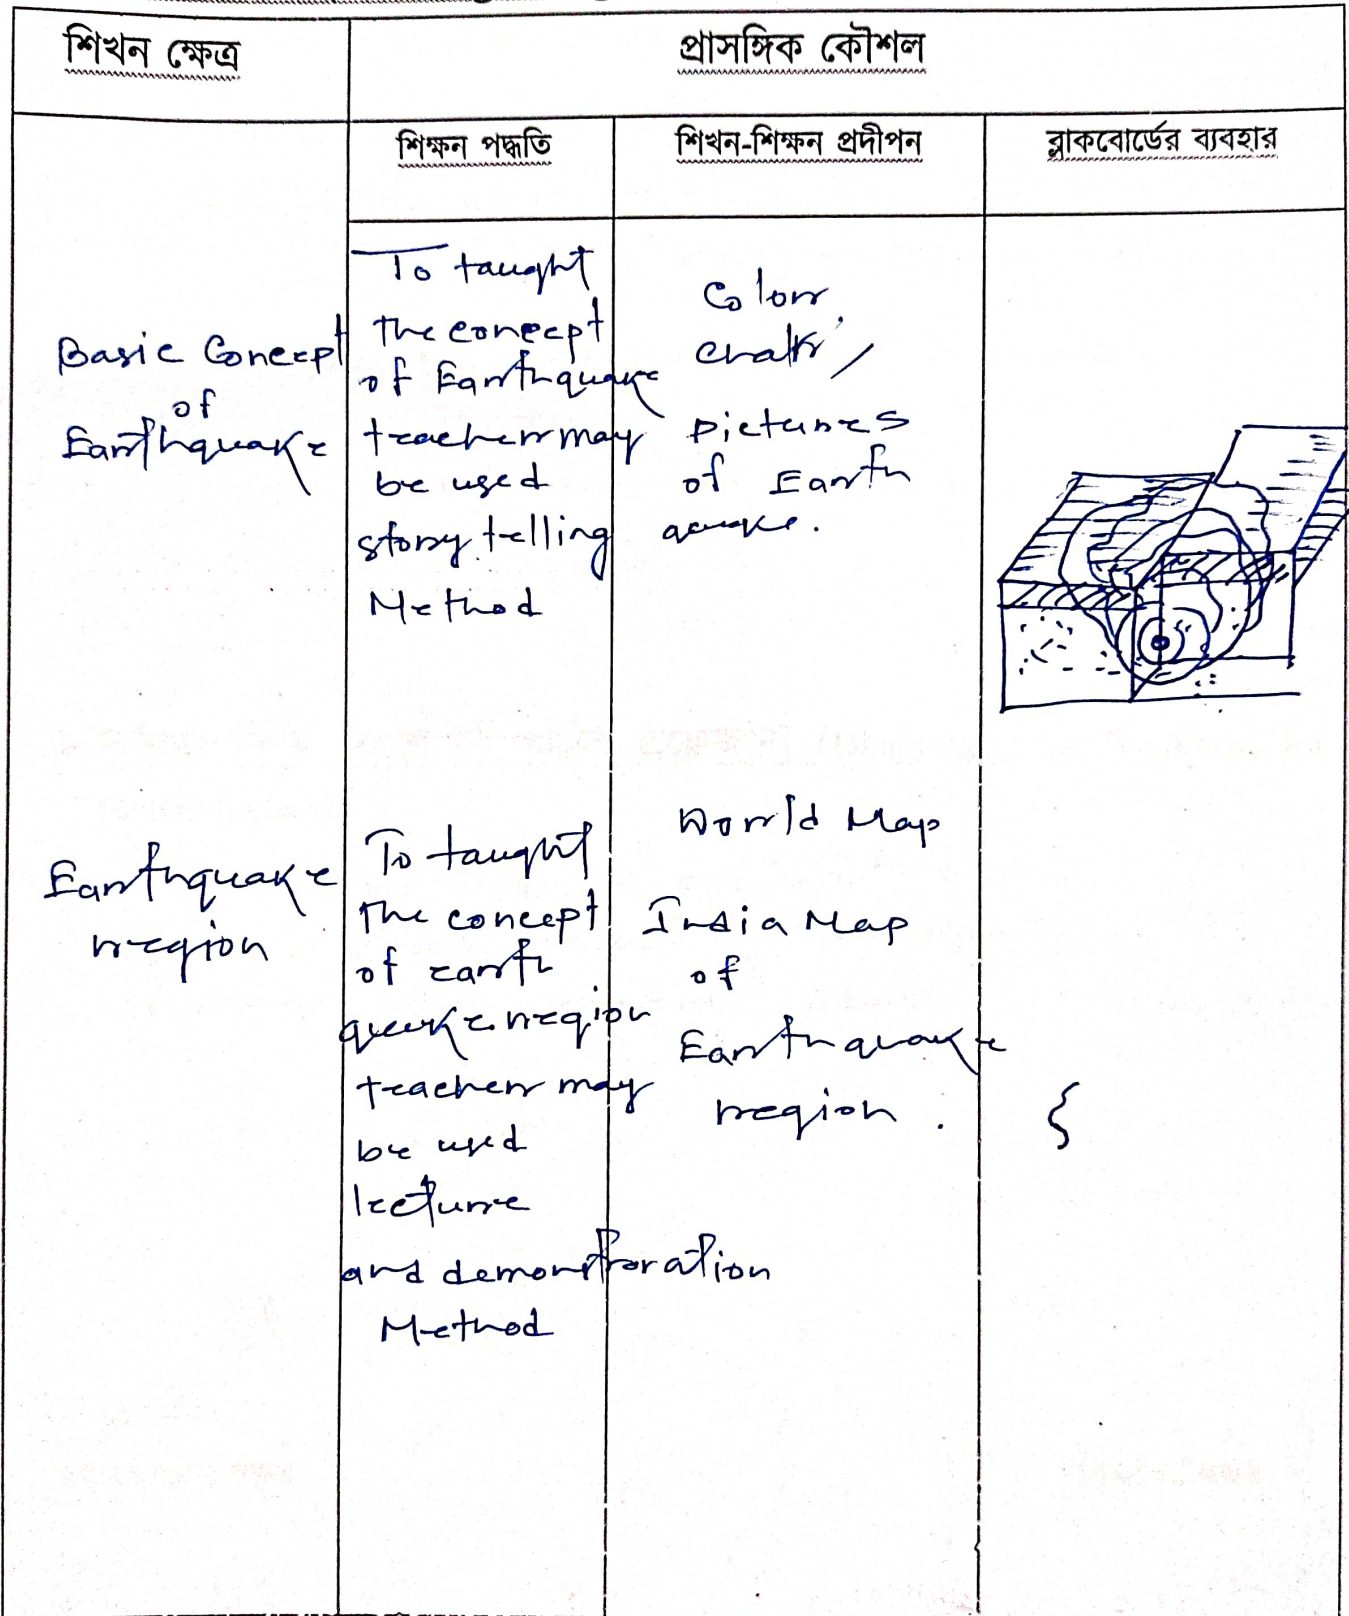 শিখন ক্ষেত্র
প্রাসঙ্গিক কৌশল
শিক্ষন পদ্ধতি
শিখন-শিক্ষন প্রদীপন
ব্লাকবোর্ডের ব্যবহার
Basic Concept
of
Earthquake
To taught
the concept
of Earthquake
teacher may
be used
story telling
Method
Color
chalk,
pictures
of Earth
quake.
Earthquake
region
To taught
the concept
of earth
quake region
teacher may
be used
lecture
and demonstroration
Method
World Map
India Map
of
Earthquake
region.